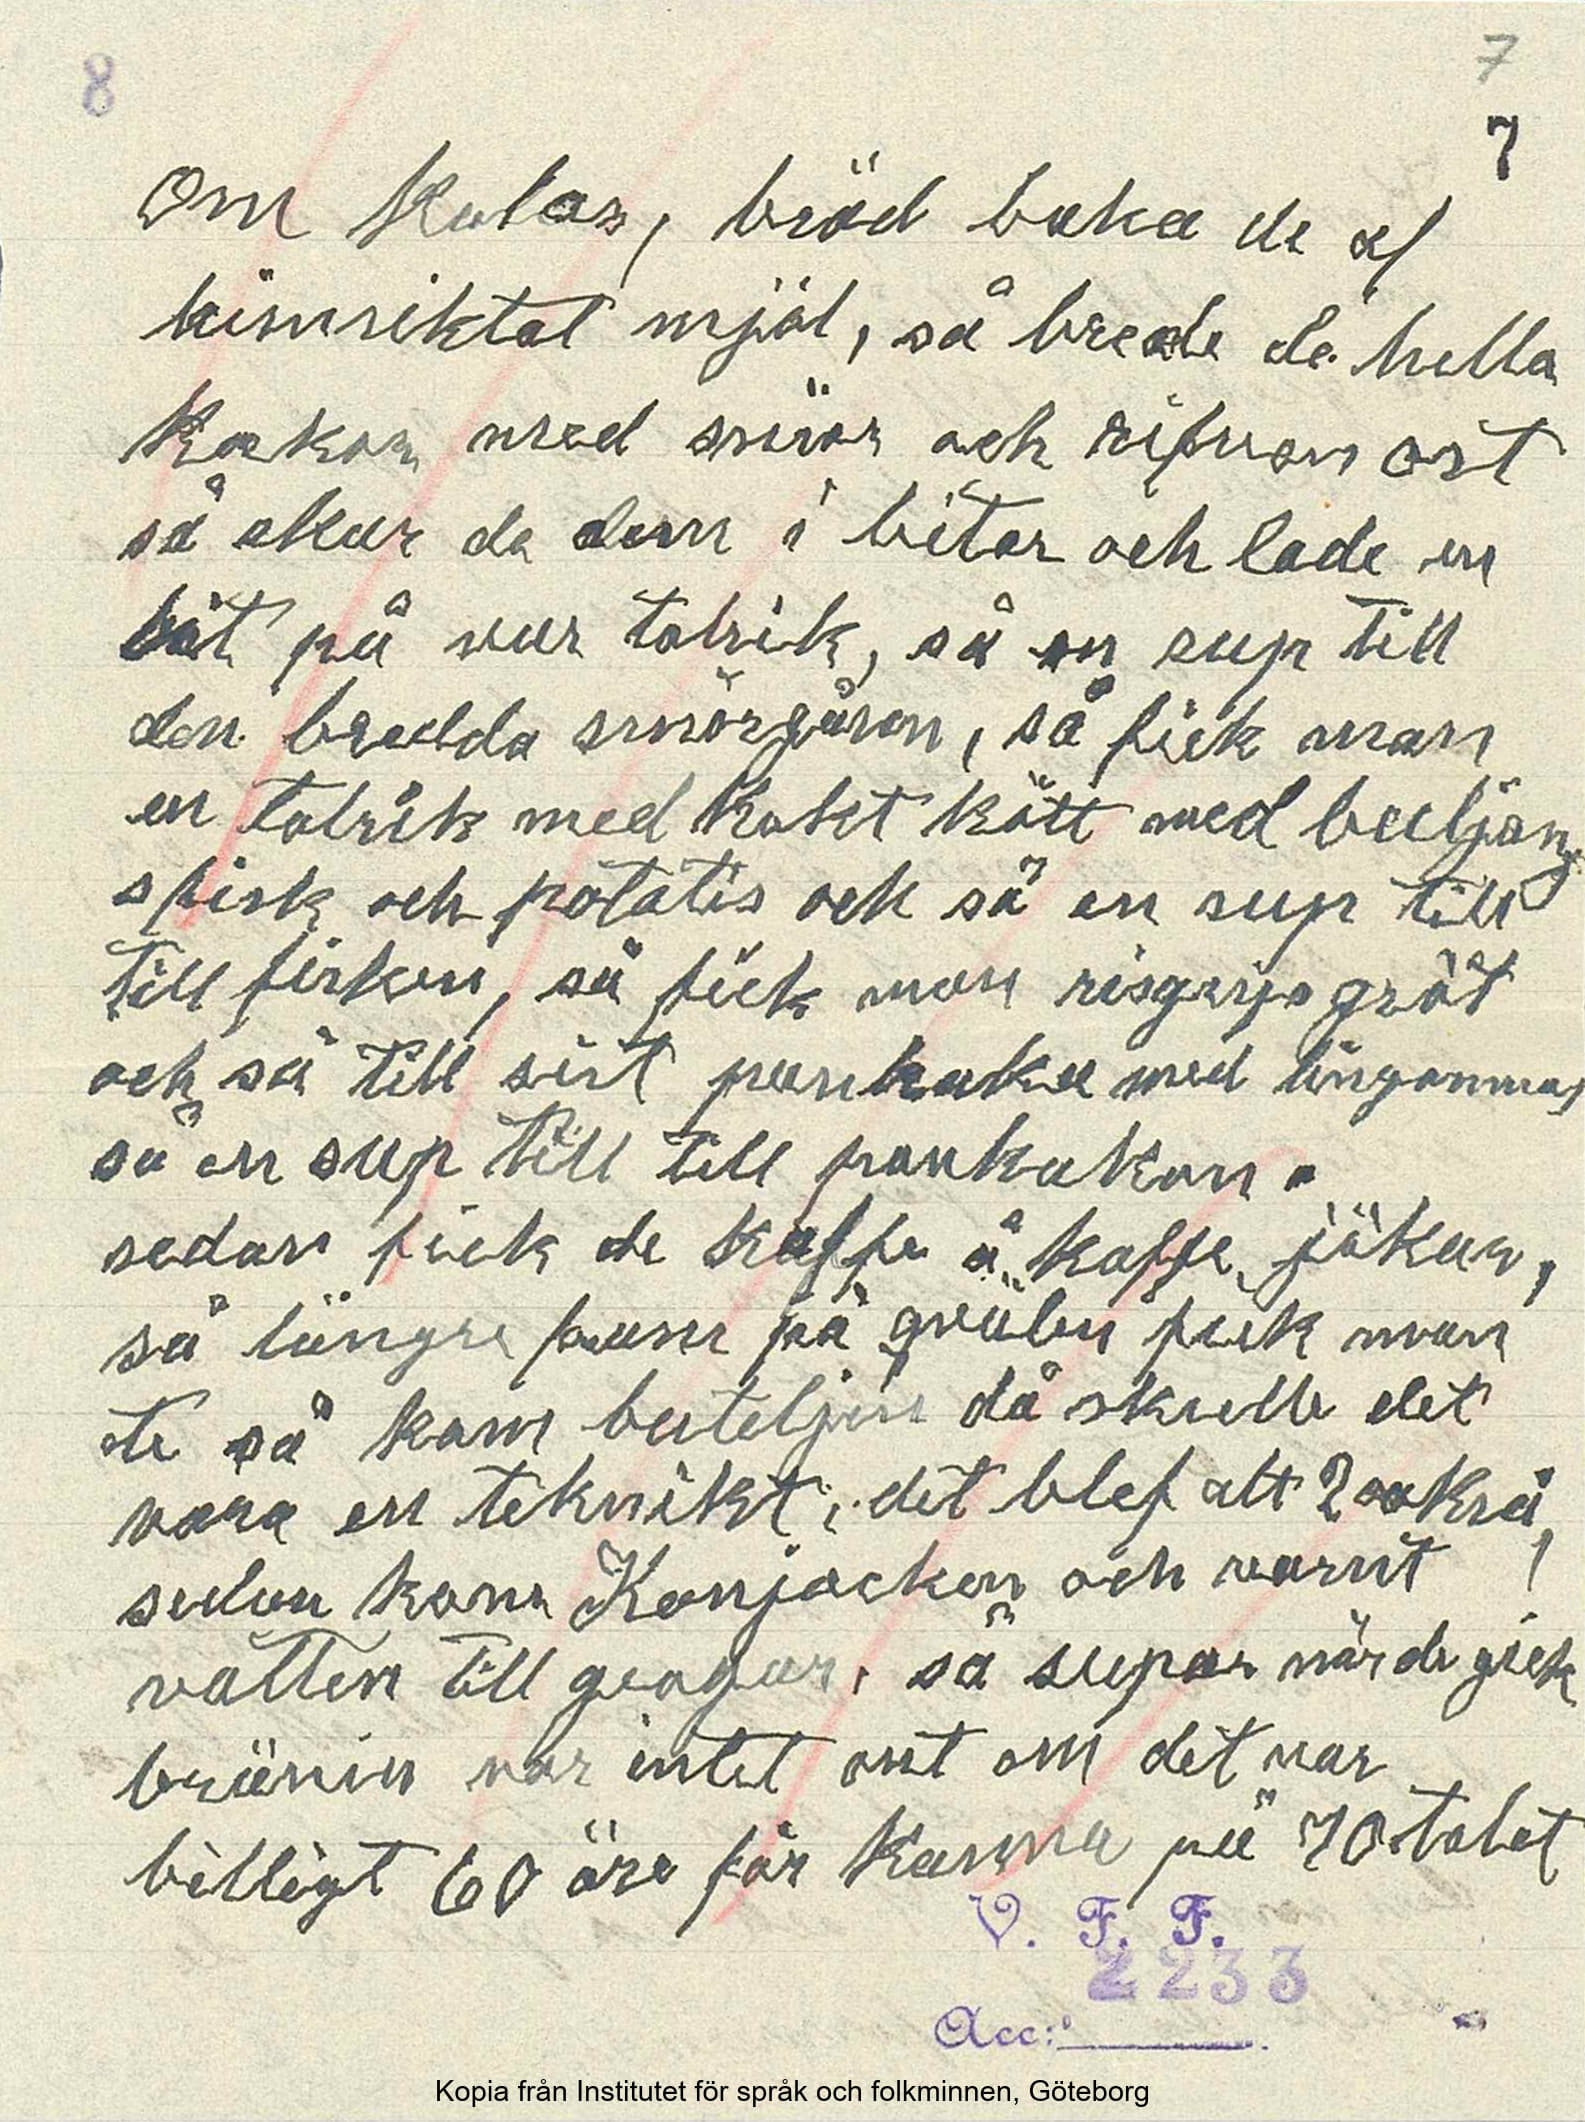 8
7
7
Om Kalas, bröd baka de af
hämsiktat mjöl, så brede de hella
Kakor med smör och rifven ost
så skar de dem i bitar och lade en
bit på var talrik, så en sup till
den bredda smörgåsen, så fick man
en talrik med Kokt kött med buljong
s fisk och potatis och så en sup till
till fisken, så fick man risgryns gröt
och så till sist pankaka med lingonmos
så en sup till till pankakan.
sedan fick de kaffe å kaffe jökar,
så längre fram på qvälen fick man
te så kom buteljen då skulle det
vara en teknikt, det blef att
sedan kom Konjacken och varmt
vatten till grogar, så supar när de gick
bränvin var intet ont om det var
billigt 60 öre för Kanna på 70 talet
V. F. F.
2233
Acc:
Kopia från Institutet för språk och folkminnen, Göteborg